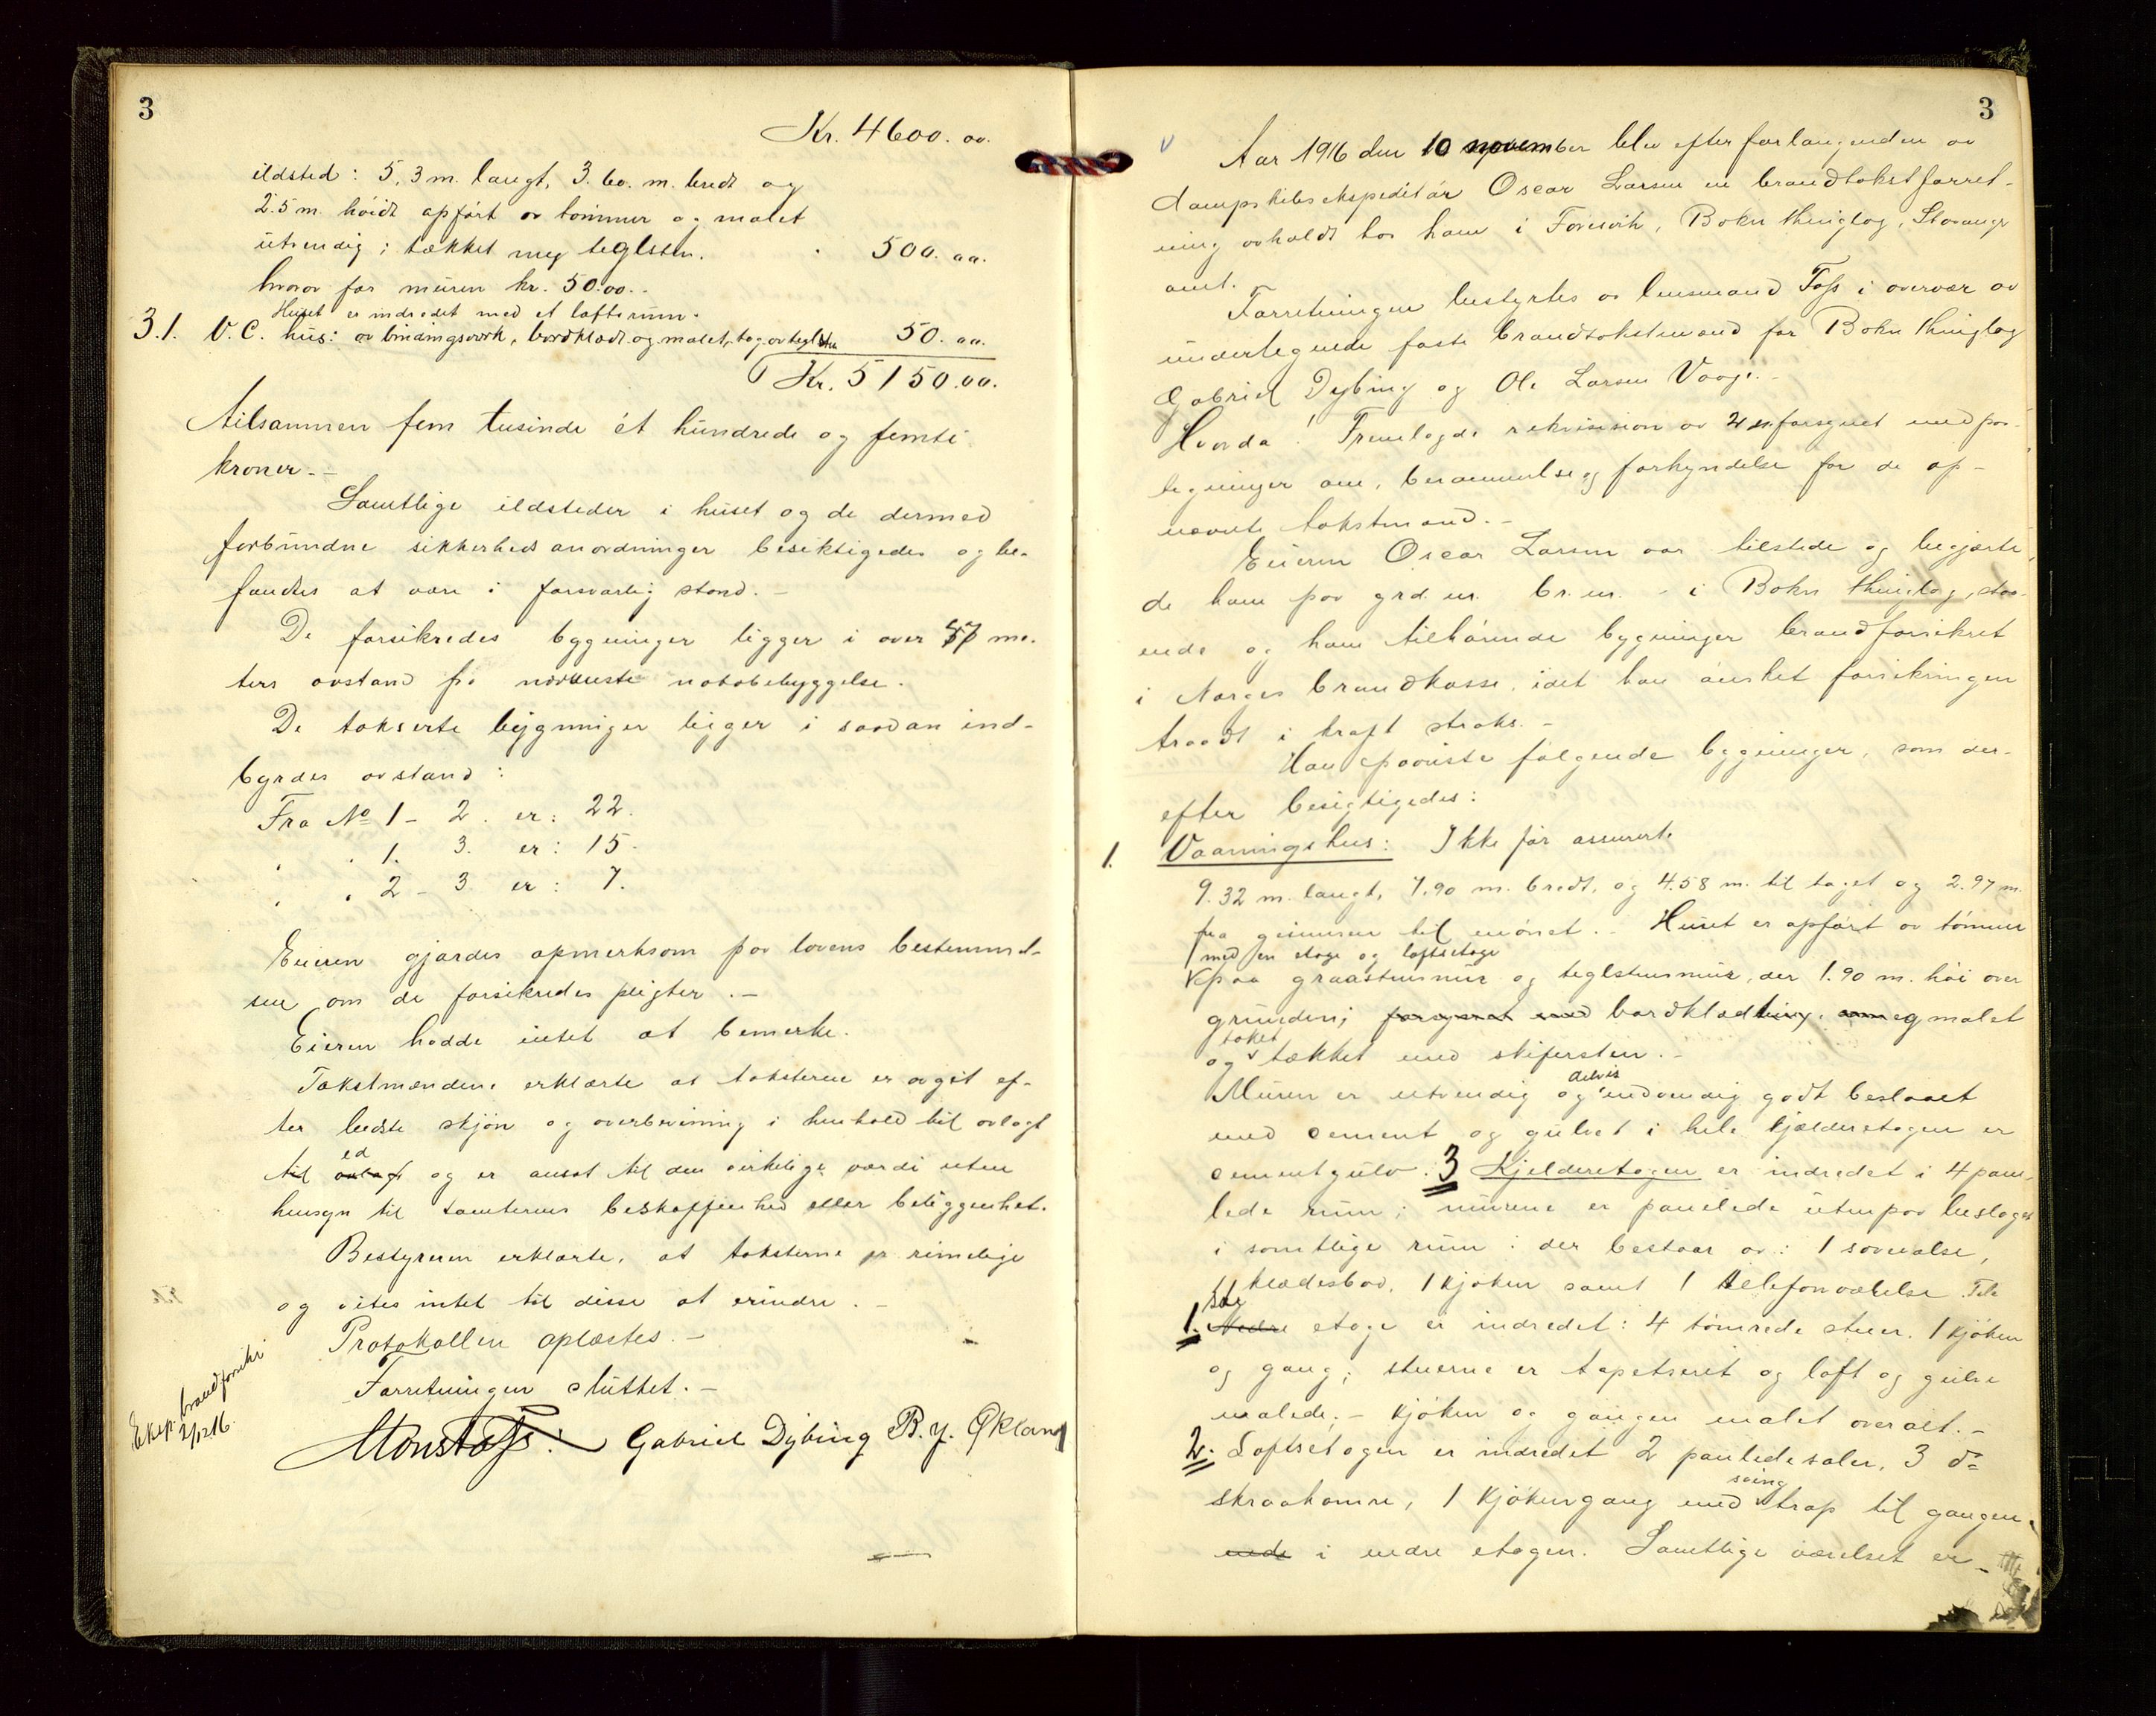 3
Kr. 4600.00.
ildsted: 5,3 m. langt, 3.60. m. bredt og
2.5 m. höidt opfört av tømmer og malet
utvendig; tækket meg teglsten. 500.00.
hvorav for muren kr. 50.00.-
Huset er indredet med et loftsrum.
31. V.C. hus: av bindingsverk, bordklædt og malet, tag av teglsten 50.00.
Kr. 5150.00.
tilsammen fem tusinde ét hundrede og femti
kroner.-
Samtlige ildsteder i huset og de dermed
forbundne sikkerhedsanordninger besiktigedes og be-
fandtes at være i forsvarlig stand.-
De forsikredes bygninger ligger i over 57 me-
ters avstand fra nærmeste nabobebyggelse.
De takserte bygninger ligger i saadan ind-
byrdes avstand:
Fra No 1 - 2. er: 22.
" " 1. 3. er: 15.
" " 2 - 3 er: 7.
Eieren gjordes opmerksom paa lovens bestemmel-
ser om de forsikredes pligter.-
Eieren hadde intet at bemerke.
Takstmændene erklærte at taksterne er avgit ef-
ter bedste skjön og overbevisning i henhold til avlagt
ed
til avlagt og er ansat til den virkelige værdi uten
hensyn til tomternes beskaffenhed eller beliggenhet.
Bestyreren erklærte, at taksterne er rimelige
og vites intet til disse at erindre.-
Protokollen oplæstes.-
Forretningen sluttet.-
Eksp. brandforsikr
2/12 16.
Mons Foss: Gabriel Dybing B. J. Økland
3
Aar 1916 den 10 november blev efter forlangende av
dampskibsekspeditör Oscar Larsen en brandtakstforret-
ning avholdt hos ham i Foresvik, Bokn thinglag, Stavanger
amt.
Forretningen bestyrtes av lensmand Foss i overvær av
undertegnede faste brandtakstmænd for Bokn thinglag
Gabriel Dybing og Ole Larsen Vaage.-
Hvorda! Fremlagdes rekvisision av 4 n. forsynet med paa-
tegninger om, berammelse og forkyndelse for de op-
nævnte takstmænd.-
Eieren Oscar Larsen var tilstede og begjærte
de ham paa grd. nr. br. nr. - i Bokn thinglag, staa-
ende og ham tilhörende bygninger brandforsikret
i Norges brandkasse, idet han önsket forsikringen
traadt i kraft straks.-
Han paaviste følgende bygninger, som der-
efter besigtigedes:
1. Vaaningshus: Ikke för assurert.
9.32 m. langt, 7.90 m. bredt, og 4.58 m. til taget og 2.97 m.
fra gesimsen til mönet.- Huset er opfört av tömmer
med en etage og loftsetage
paa graastensmur og teglstensmur, der 1.90 m. höi over
grunden; forsynet med bordklædning, og malet
taket
og tækket med skifersten.-
delvis
Muren er utvendig og indvendig godt beslaaet
med cement og gulvet i hele kjelderetagen er
cementgulv. 3 Kjelderetagen er indredet i 4 pane-
lede rum; murene er panelede utenpaa beslaget
i samtlige rum: der bestaar av: 1 soverelse,
klædesbod, 1 kjöken samt 1 telefonværelse. Tele
1. Ste
Nedre etage er indredet: 4 tömrede stuer. 1 kjöken
og gang; stuerne er tapetseret og loft og gulve
malede;- kjöken og gangen malet overalt.-
2. Loftsetagen er indredet 2 panlede saler, 3 do
sving
skraakamre, 1 kjökengang med trap til gangen
nede i nedre etagen. Samtlige værelset er